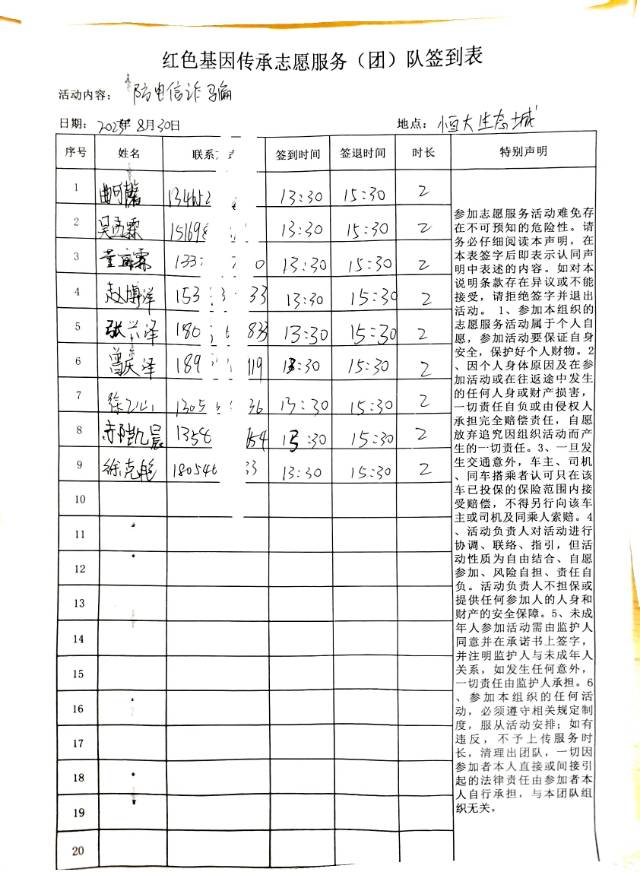 红色基因传承志愿服务（团）队签到表
活动内容：防电信诈骗
日期：2023年8月30日 地点：恒大生态城
序号 姓名 联系 签到时间 签退时间 时长 特别声明
1 134652 13:30 15:30 2
2 151698 13:30 15:30 2
3 133 0 13:30 15:30 2
4 赵博洋 153 33 13:30 15:30 2
5 张兴泽 180 833 13:30 15:30 2
6 曾庆泽 189 119 13:30 15:30 2
7 1305 36 13:30 15:30 2
8 1358 154 13:30 15:30 2
9 徐克彪 180546 33 13:30 15:30 2
10
11
12
13
14
15
16
17
18
19
20
参加志愿服务活动难免存
在不可预知的危险性。请
务必仔细阅读本声明，在
本表签字后即表示认同声
明中表述的内容。如对本
说明条款存在异议或不能
接受，请拒绝签字并退出
活动。 1、参加本组织的
志愿服务活动属于个人自
愿，参加活动要保证自身
安全，保护好个人财物。2
、因个人身体原因及在参
加活动或在往返途中发生
的任何人身或财产损害，
一切责任自负或由侵权人
承担完全赔偿责任，自愿
放弃追究因组织活动而产
生的一切责任。3、一旦发
生交通意外，车主、司机
、同车搭乘者认可只在该
车已投保的保险范围内接
受赔偿，不得另行向该车
主或司机及同乘人索赔。4
、活动负责人对活动进行
协调、联络、指引，但活
动性质为自由结合、自愿
参加、风险自担、责任自
负。活动负责人不担保或
提供任何参加人的人身和
财产的安全保障。5、未成
年人参加活动需由监护人
同意并在承诺书上签字，
并注明监护人与未成年人
关系，如发生任何意外，
一切责任由监护人承担。6
、参加本组织的任何活
动，必须遵守相关规定制
度，服从活动安排；如有
违反，不予上传服务时
长，清理出团队，一切因
参加者本人直接或间接引
起的法律责任由参加者本
人自行承担，与本团队组
织无关。